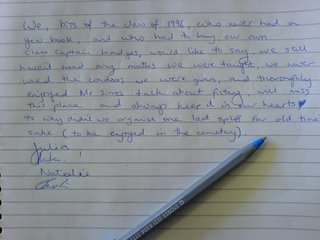 We, bits of the class of 1996, who never had a
year book, and who had to buy our own
Class Captain badges, would like to say, we still
havent used any maths we were taught, we never
used the condoms we were given, and thoroughly
enjoyed Mr Sims talk about fishing, will miss
this place and always keep it in our hearts
PS Why didn't we organise one last spliff for old time
sake (to be enjoyed in the cemetery).
Julia
Natalie